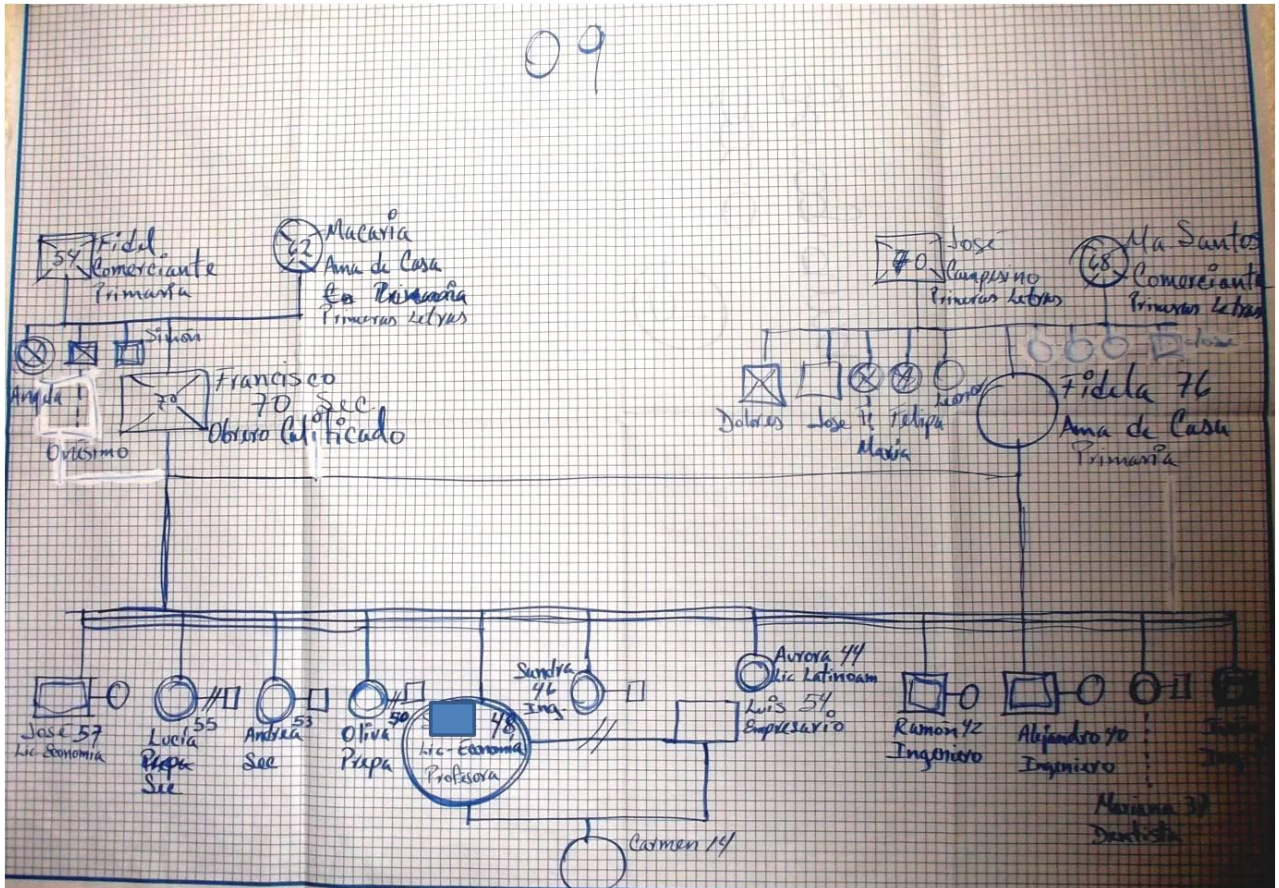 09
54 Fidel
Comerciante
Primaria
62 Macaria
Ama de Casa
Primaria
Primeras Letras
José
Campesino
Primeras Letras
68 Ma Santos
Comerciante
Primeras Letras
Simón
Angela
Onesimo
70 Francisco
70 Sec.
Obrero Calificado
Dolores
Jose
María
Felipa
Jose
Fidela 76
Ama de Casa
Primaria
Jose 57
Lic Economia
Lucía 55
Prepa
Sec
Andrea 53
Sec
Oliva 50
Prepa
48
Lic-Economia
Profesora
Sandra
46
Ing.
Aurora 44
Lic Latinoam
Luis 54
Empresario
Ramón 42
Ingeniero
Alejandro 40
Ingeniero
Mariana 38
Dentista
Carmen 14